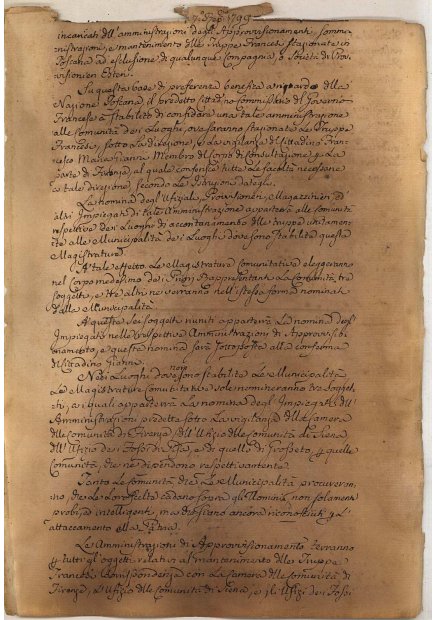 1799
incaricati dell'amministrazione degli Approvvisionamenti, somme-
nistrazioni, e mantenimento delle Truppe Francesi stazionate in
Toscana ad esclusione di qualunque Compagnia, o Società di Prov-
visionieri Esteri.
Su questa base di preferenza benefica a riguardo della
Nazione Toscana il predetto Cittadino Commissario del Governo
Francese à stabilito di confidare una tale amministrazione
alle Comunità dei Luoghi, ove saranno stazionate le Truppe
Francesi, sotto la direzione, e la vigilanza del Cittadino Fran-
cesco Maria Gianni Membro del Corpo di Consultazione p. la
parte di Firenze, al quale conferisce tutte le facoltà necessarie
a tale direzione, secondo le Istruzioni dategli.
La nomina degl'Ufiziali, Provveditori, Magazzinieri, ed
altri Impiegati di tale Amministrazione apparterrà alle Comunità
respettive dei Luoghi di accantonamento delle truppe unitamen-
te alle Municipalità dei Luoghi dove sono stabilite queste
Magistrature.
A tale effetto le Magistrature Comunitative eleggeranno
nel Corpo medesimo dei Priori Rappresentanti la Comunità tre
soggetti, e tre altri ne verranno nell'istessa forma nominati
dalla Municipalità.
A questi sei soggetti riuniti apparterrà la nomina degl'
Impiegati nelle respettive Amministrazioni di Approvvisio-
namento, e questa nomina sarà sottoposta alla conferma
del Cittadino Gianni.
Nei Luoghi dove non sono stabilite le Municipalità
le Magistrature Comunitative sole nomineranno tre Sogget-
ti, ai quali apparterrà la nomina degl'Impiegati dell'
Amministrazioni predette sotto la vigilanza della Camera
delle Comunità di Firenze, dell'Ufizio delle Comunità di Siena,
dell'Ufizio dei Fossi di Pisa, e di quello di Grosseto p. quelle
Comunità, che ne dipendono respettivamente.
Tanto le Comunità che le Municipalità procureran-
no, che le loro scelte cadano sopra gli Uomini non solamente
probi, ed intelligenti, ma che siano ancora riconosciuti p. l'
attaccamento alla Patria.
Le Amministrazioni di Approvvisionamento terranno
p. tutti gli oggetti relativi al mantenimento delle Truppe
Francesi corrispondenza con la Camera delle Comunità di
Firenze, l'Ufizio delle Comunità di Siena, e gli Ufizi dei Fossi